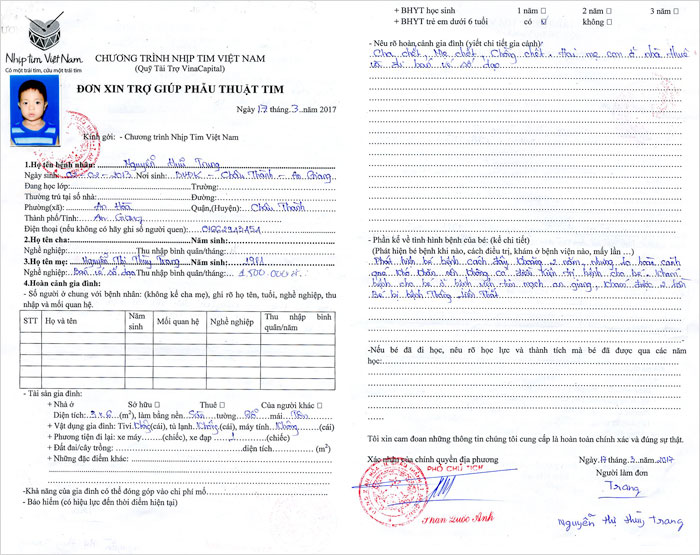 Nhịp tim Việt Nam
Có một trái tim, cứu một trái tim
CHƯƠNG TRÌNH NHỊP TIM VIỆT NAM
(Quỹ Tài Trợ VinaCapital)
ĐƠN XIN TRỢ GIÚP PHẪU THUẬT TIM
Ngày 17 tháng..3..năm 2017
Kính gởi: - Chương trình Nhịp Tim Việt Nam
1.Họ tên bệnh nhân: Nguyễn Hữu Trung
Ngày sinh: 02-02-2013 Nơi sinh: BVĐK - Châu Thành - An Giang
Đang học lớp: Trường:
Thường trú tại số nhà: Đường:
Phường(xã): An Hòa Quận,(Huyện): Châu Thành
Thành phố/Tỉnh: An Giang
Điện thoại (nếu không có hãy ghi số người quen):
2.Họ tên cha: Năm sinh:
Nghề nghiệp: Thu nhập bình quân/tháng:
3.Họ tên mẹ: Nguyễn Thị Thùy Trang Năm sinh: 1981
Nghề nghiệp: Bán vé số dạo Thu nhập bình quân/tháng: 1.500.000đ
4.Hoàn cảnh gia đình:
- Số người ở chung với bệnh nhân: (không kể cha mẹ), ghi rõ họ tên, tuổi, nghề nghiệp, thu
nhập và mối quan hệ.
STT Họ và tên Năm sinh Mối quan hệ Nghề nghiệp Thu nhập bình quân/năm
- Tài sản gia đình:
+ Nhà ở Sở hữu □ Thuê □ Của người khác □
Diện tích: 3x6 (m²), làm bằng nền tường mái Tôn
+ Vật dụng gia đình: Tivi Không (cái), tủ lạnh Không (cái), máy tính Không (cái)
+ Phương tiện đi lại: xe máy (chiếc), xe đạp 1 (chiếc)
+ Đất đai/cây trồng: diện tích (m²)
+ Những đặc điểm khác:
-Khả năng của gia đình có thể đóng góp vào chi phí mổ
- Bảo hiểm (có hiệu lực đến thời điểm hiện tại)
+ BHYT học sinh 1 năm □ 2 năm □ 3 năm □
+ BHYT trẻ em dưới 6 tuổi có ☑ không □
- Nêu rõ hoàn cảnh gia đình (viết chi tiết gia cảnh)
Cha chết, Mẹ chết, Chồng chết. Hai mẹ con ở nhà thuê
đi bán vé số dạo
- Phần kể về tình hình bệnh của bé: (kể chi tiết)
(Phát hiện bé bệnh khi nào, cách điều trị, khám ở bệnh viện nào, mấy lần …)
Phát hiện bé bệnh cách đây khoảng 2 năm, nhưng do hoàn cảnh
quá khó khăn nên không có điều kiện trị bệnh cho bé. Khám
bệnh cho bé ở bệnh viện tim mạch an giang, khám được 2 lần
Bé bị bệnh Thông Liên Thất
-Nếu bé đã đi học, nêu rõ học lực và thành tích mà bé đã được qua các năm
học:
Tôi xin cam đoan những thông tin chúng tôi cung cấp là hoàn toàn chính xác và đúng sự thật.
Xác nhận của chính quyền địa phương
Ngày 17 tháng..3..năm 2017
Người làm đơn
PHÓ CHỦ TỊCH
Trang
Phan Quốc Anh
Nguyễn Thị Thùy Trang